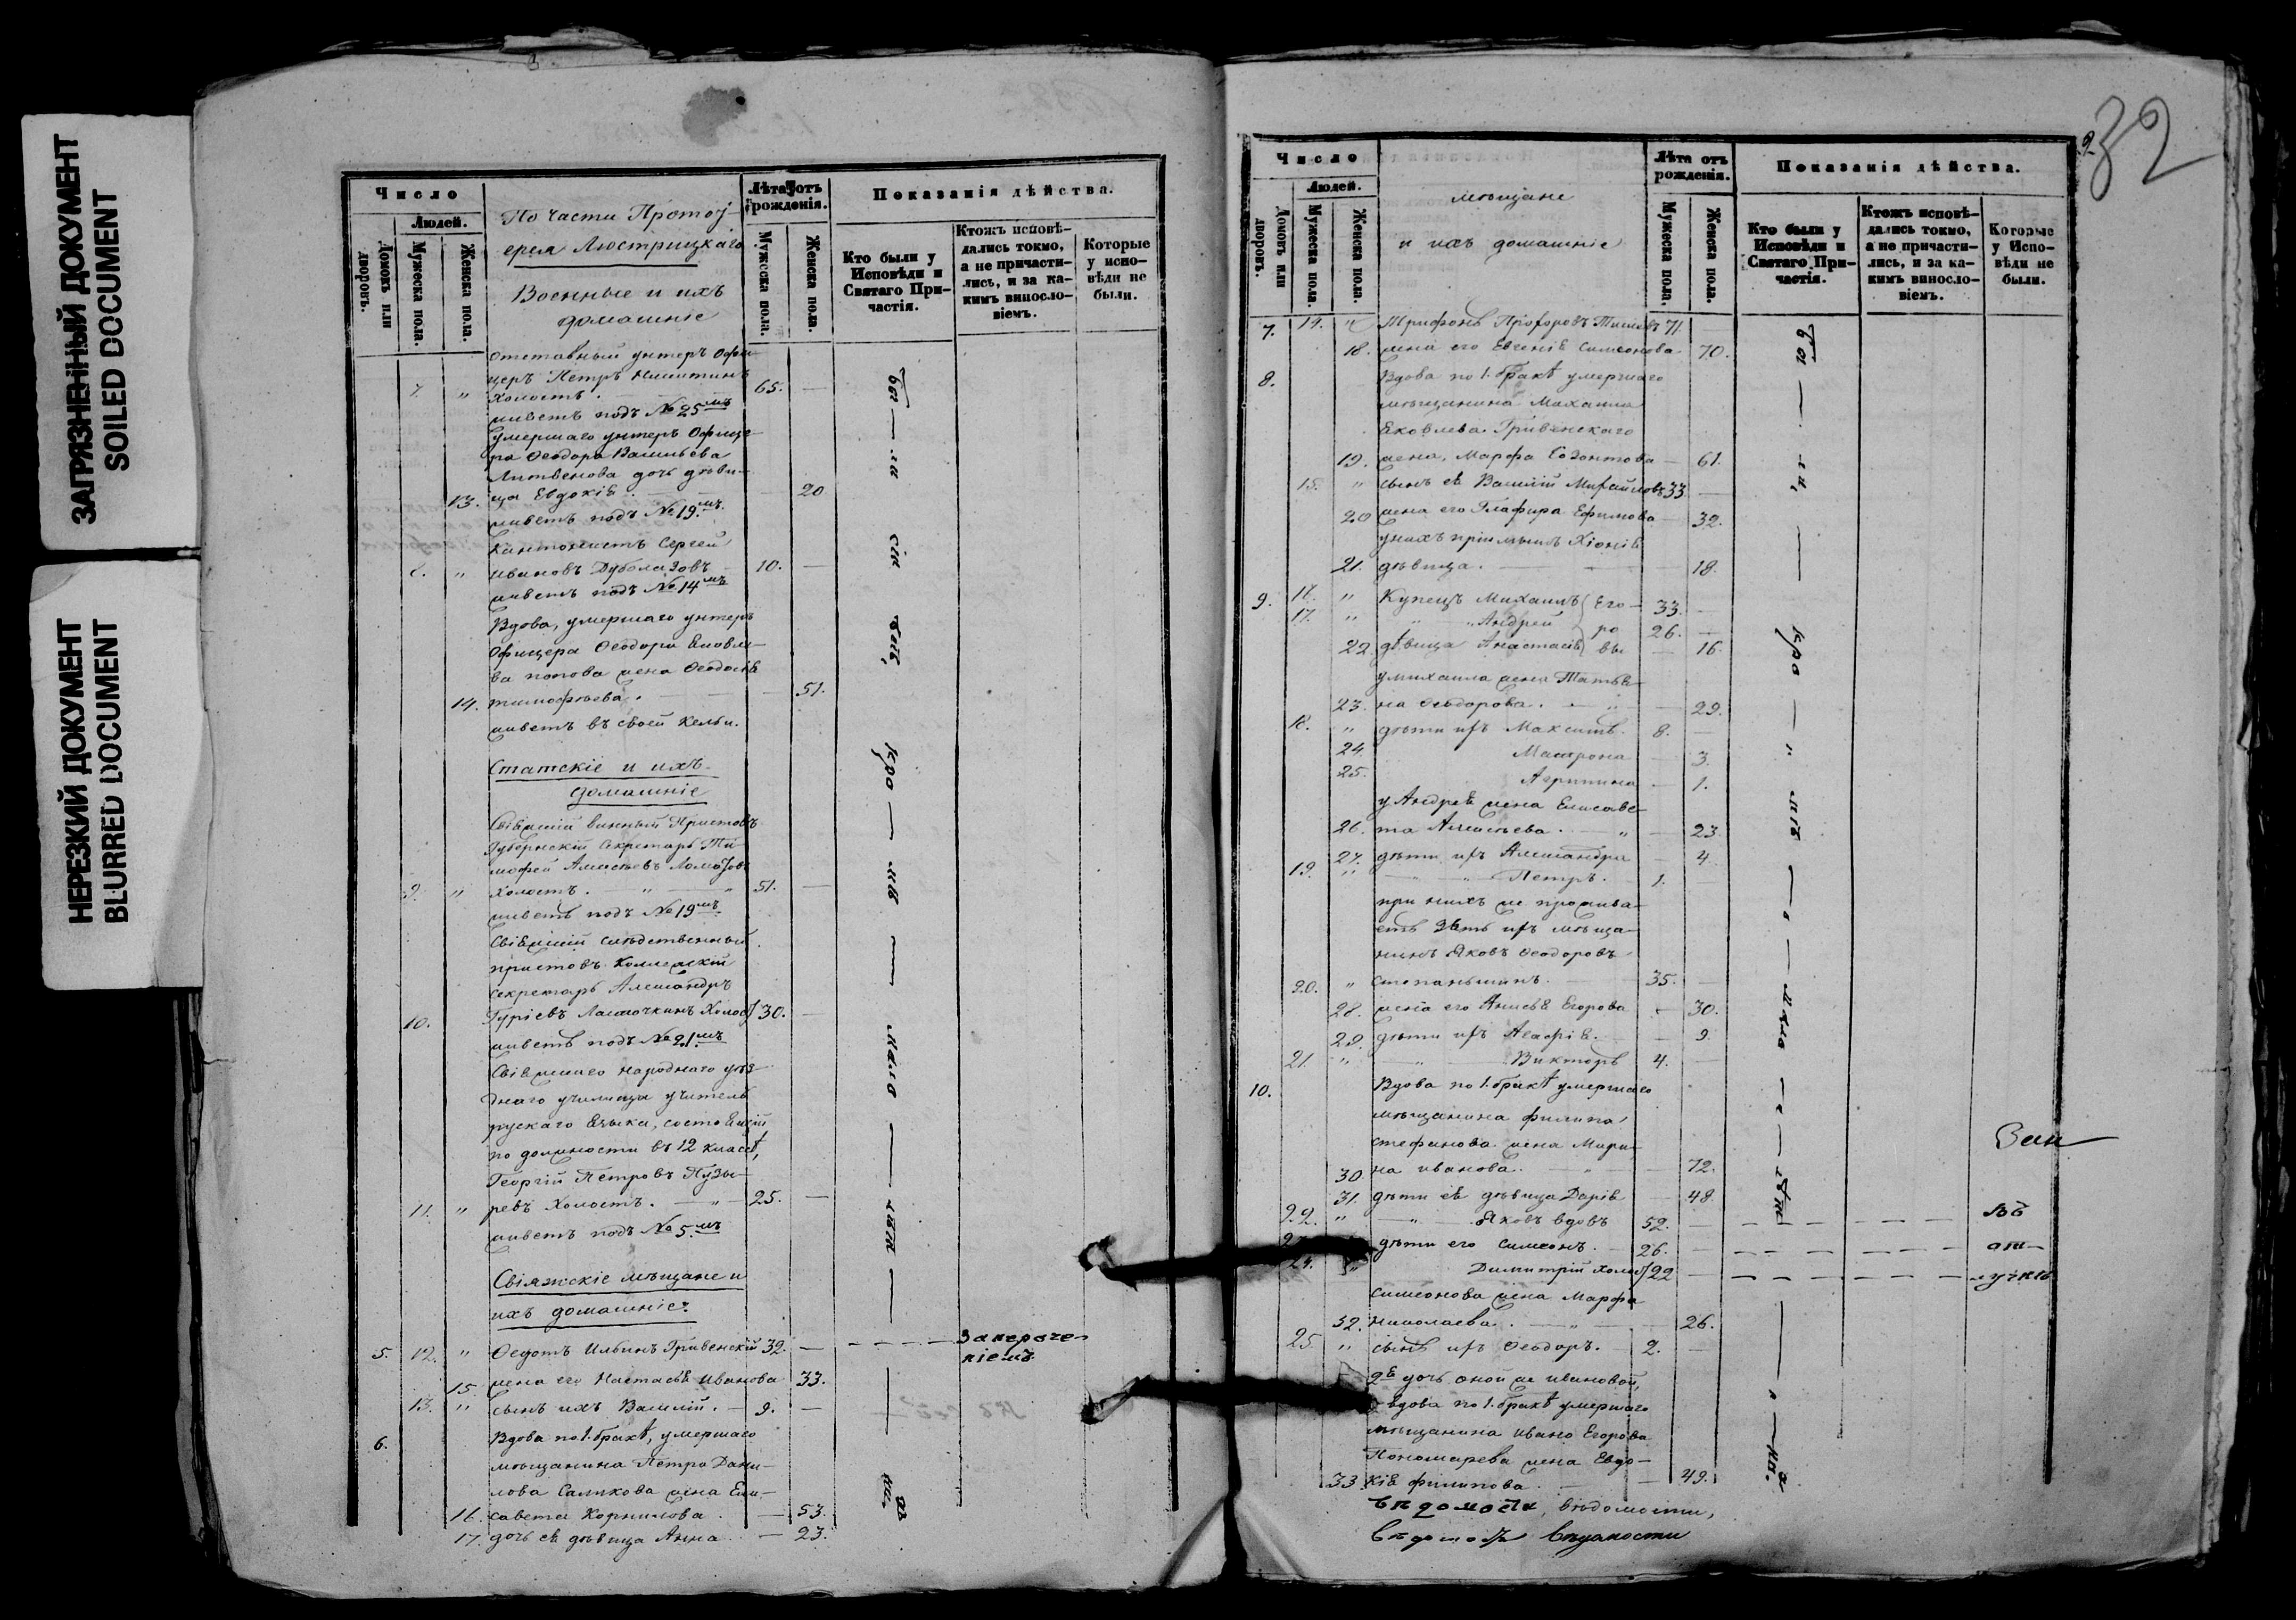 ЗАГРЯЗНЕННЫЙ ДОКУМЕНТ
SOILED DOCUMENT
НЕРЕЗКИЙ ДОКУМЕНТ
BLURRED DOCUMENT
Число
Людей.
Домовъ или дворовъ.
Мужеска пола.
Женска пола.
По части Протоі-
ерея Люстрицкаго
Военные и ихъ
домашніе
Лѣта отъ рожденія.
Мужеска пола.
Женска пола.
Показанія дѣйства.
Кто были у Исповѣди и Святаго При-частія.
Ктожъ исповѣ-дались токмо, а не причасти-лись, и за ка-кимъ винословіемъ.
Которые у испо-вѣди не были.
отставный унтеръ офи-
церъ Петръ Никитинъ
7. " холостъ. 65. —
живетъ подъ № 25мъ
умершаго унтеръ Офице-
ра Ѳеодора Васильева
Литвенова дочь дѣви-
13. ца Евдокія. — 20
живетъ подъ № 19.мъ
Кантонистъ Сергей
8. " Ивановъ Дуболазовъ 10. —
живетъ подъ № 14мъ
Вдова, умершаго унтеръ
офицера Ѳеодора Яковле-
ва попова жена Ѳеодосія
14. тимофѣева. — 51.
живетъ въ своей кельи.
Статскіе и ихъ
домашніе
Свіяжскій винный Приставъ
Губернскій Секретарь Ти-
мофей Алексѣевъ Ломозовъ
9. " холостъ. — " — " 51. —
живетъ подъ № 19мъ
Свіяжскій слѣдственный
приставъ Коллежскій
секретарь Александръ
10. Гуріевъ Ласточкинъ Холос 30. —
живетъ подъ № 21.мъ
Свіяжскаго народнаго уѣз-
днаго училища учитель
рускаго языка, состоящій
по должности въ 12 классѣ,
Георгій Петровъ Пузы-
11. " ревъ Холостъ. — " — 25. —
живетъ подъ № 5.мъ
Свіяжскіе мѣщане и
ихъ домашніе
5. 12. " Ѳедотъ Ильинъ Гривенскій 32. — За нераче-
ніемъ.
15. жена его Настасья Иванова 33.
13. " сынъ ихъ Василій. — 9. —
6. Вдова по 1. бракѣ, умершаго
мѣщанина Петра Дани-
лова Саликова жена Ели-
16. савета Корнилова. — 53.
17. дочь ея дѣвица Анна — 23.
32
Число
Людей.
Домовъ или дворовъ.
Мужеска пола.
Женска пола.
мѣщане
и ихъ домашніе
Лѣта отъ рожденія.
Мужеска пола.
Женска пола.
Показанія дѣйства.
Кто были у Исповѣди и Святаго При-частія.
Ктожъ исповѣ-дались токмо, а не причасти-лись, и за ка-кимъ винословіемъ.
Которые у Испо-вѣди не были.
7. 14. " Трифонъ Прохоровъ 71 —
18. жена его Евгенія Симеонова — 70.
8. Вдова по 1. бракѣ умершаго
мѣщанина Михаила
Яковлева Гривенскаго
19. жена, Марфа Созонтова — 61.
15. " сынъ ея Василій Михайловъ 33 —
20 жена его Глафира Ефимова — 32.
у нихъ пріимышъ Хіонія
21. дѣвица. — 18.
9. 16. " Купецъ Михаилъ Его- 33. —
17. " " Андрей ро 26. —
22 дѣвица Анастасія вы — 16.
у михаила жена Татья-
23. на Ѳеодорова. — " — 29.
18. " дѣти ихъ Максимъ. 8. —
24 Матрона — 3.
25. Агрипина — 1.
у Андрея жена Елисаве-
26. та Алексѣева. — " — 23.
27. дѣти ихъ Александра — 4.
19. " — " — Петръ. 1. —
при нихъ же прожива-
етъ зять ихъ мѣща-
нинъ Яковъ Ѳеодоровъ
20. " Степанышинъ. — 35. —
28. жена его Анисья Егорова — 30.
29. дѣти ихъ Агафія. — 9.
21. " " Викторъ 4. —
10. Вдова по 1. бракѣ умершаго
мѣщанина филипа
стефанова жена Мари-
30 на иванова. — " — 72.
31. дѣти ея дѣвица Дарія — 48
22. " — " — Яковъ вдовъ 52. — въ
дѣти его Симеонъ. 26. — от-
24. " Димитрій холос 22 — лучкѣ
Симеонова жена Марфа
32. Николаева. — " — 26.
25. " сынъ ихъ Ѳеодоръ. — 2. —
2я дочь оной же ивановой,
вдова по 1. бракѣ умершаго
мѣщанина ивана Егорова
Пономарева жена Евдо-
33 кія филипова. — 49.
вѣдомости, вѣдомости,